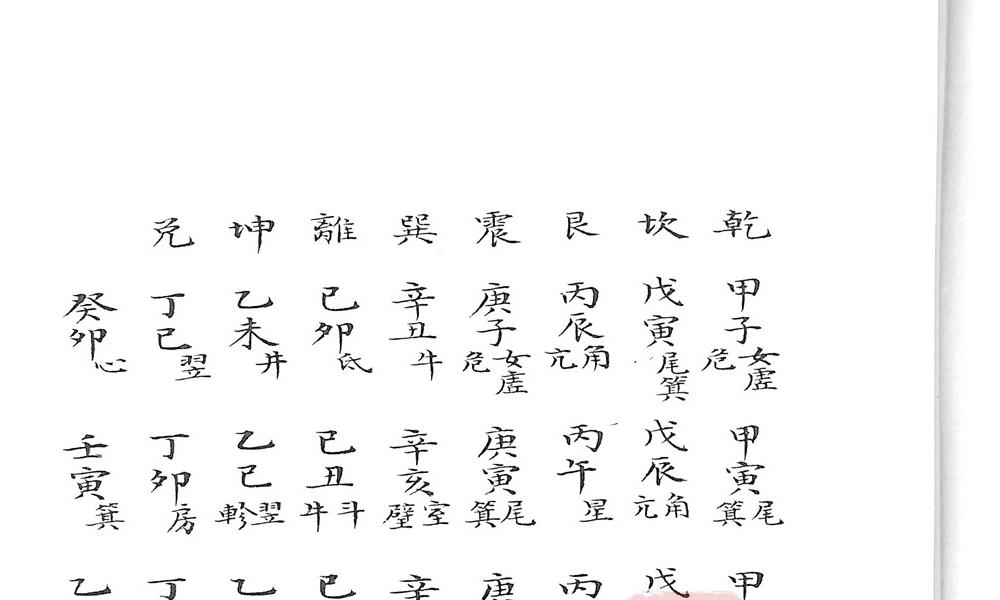 乾 甲子 女虛危 甲寅 尾箕 甲
坎 戊寅 尾箕 戊辰 角亢 戊
艮 丙辰 角亢 丙午 星 丙
震 庚子 女虛危 庚寅 尾箕 庚
巽 辛丑 牛 辛亥 室壁 辛
離 己卯 氐 己丑 斗牛 己
坤 乙未 井 乙巳 翌軫 乙
兌 丁巳 翌 丁卯 房 丁
癸卯 心 壬寅 箕 乙